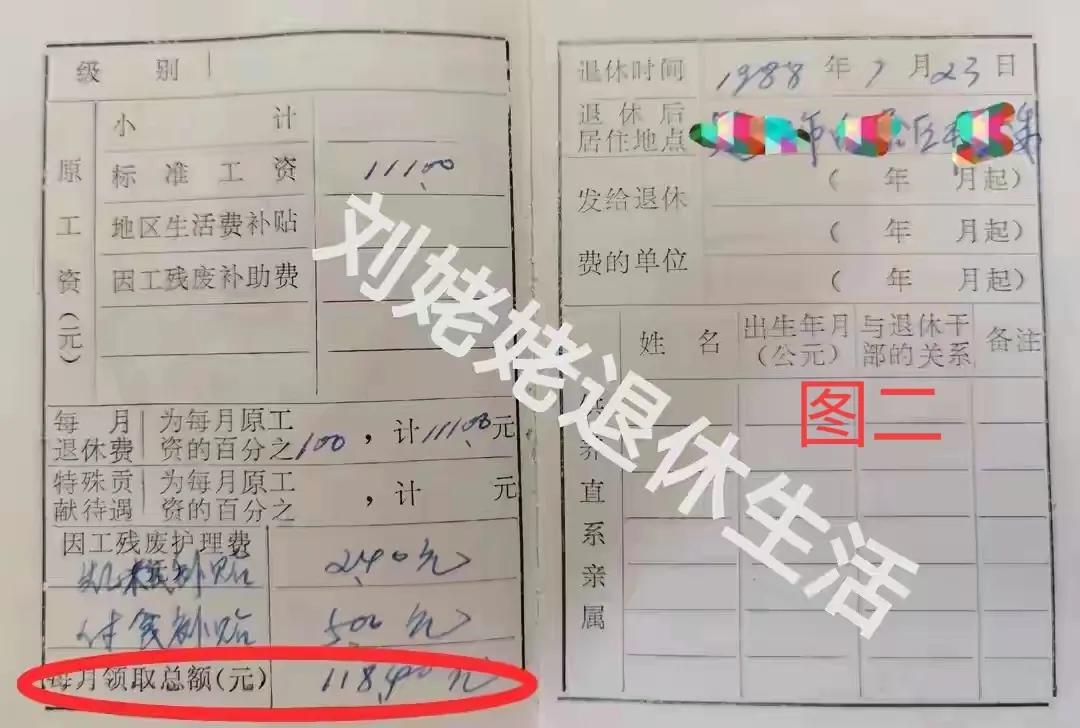 级别
原工资(元)
小计
标准工资 111.00
地区生活费补贴
因工残废补助费
每月退休费 为每月原工资的百分之100,计111.00元
特殊贡献待遇 为每月原工资的百分之 ,计 元
因工残废护理费
补贴 2.40元
付食补贴 5.00元
每月领取总额(元) 118.40元
退休时间 1988年7月23日
退休后居住地点
发给退休费的单位
( 年 月起)
( 年 月起)
( 年 月起)
供养直系亲属
姓名
出生年月(公元)
与退休干部的关系
备注
图二
刘姥姥退休生活